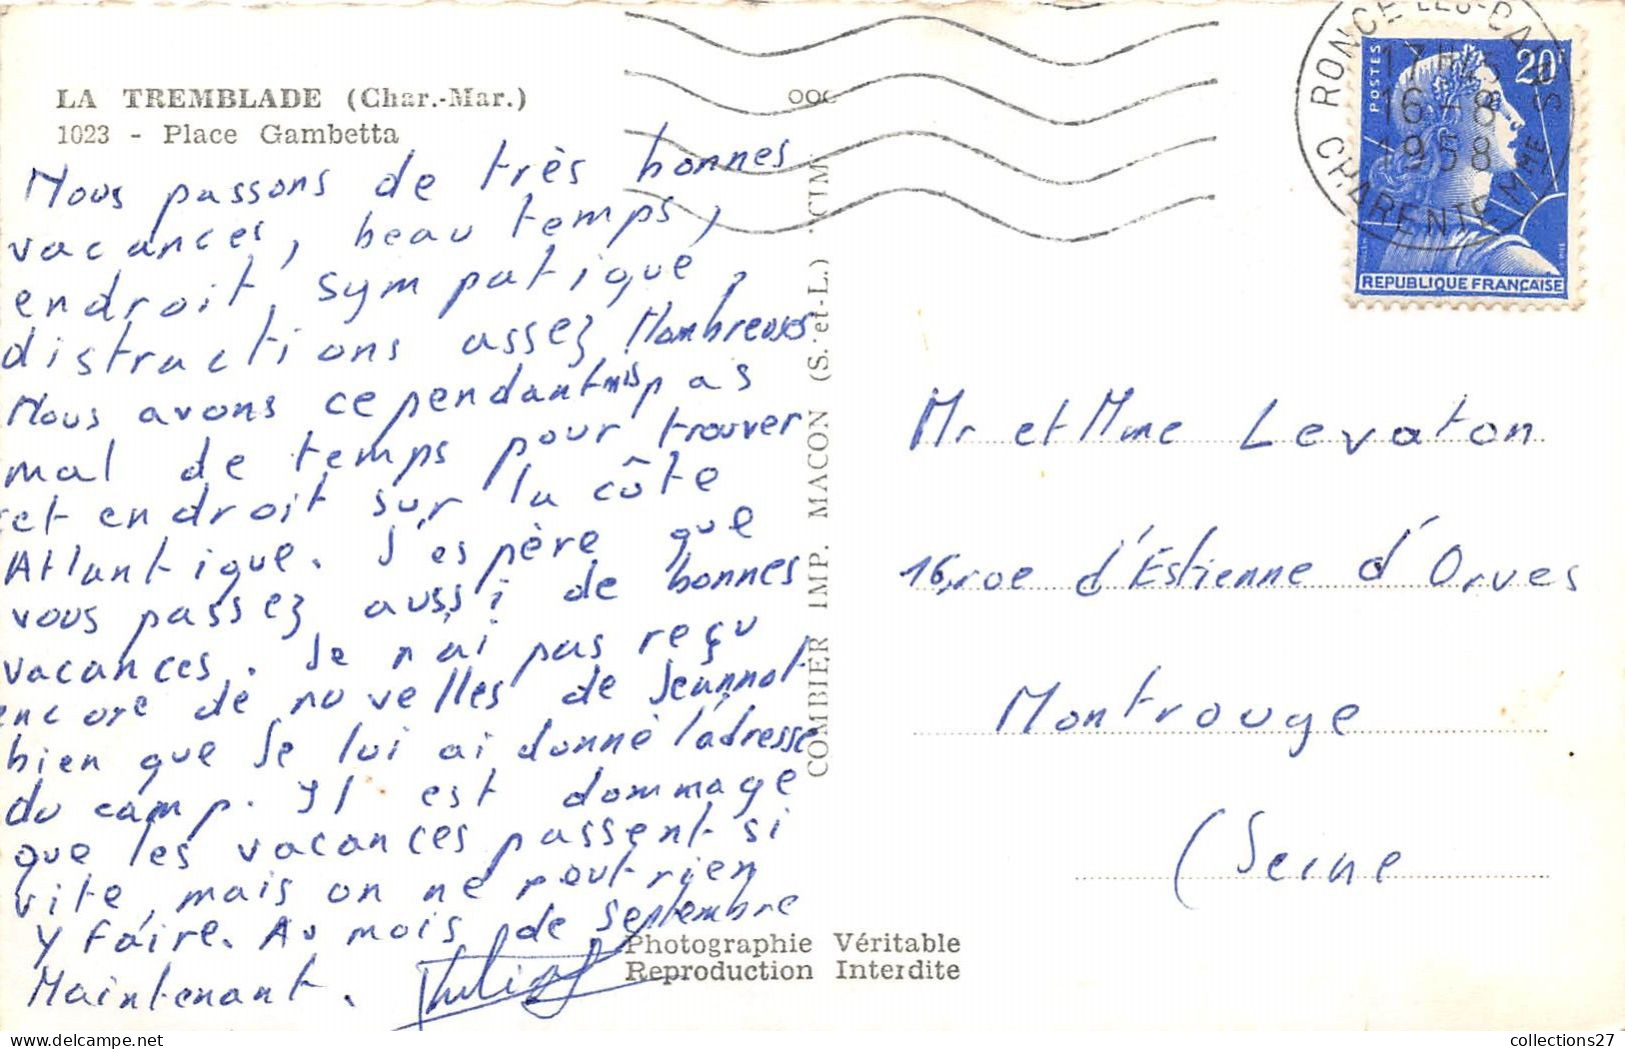 LA TREMBLADE (Char.-Mar.)
1023 - Place Gambetta
Nous passons de très bonnes
vacances, beau temps,
endroit sympatique,
distractions assez Nombreuses
Nous avons cependant mis pas
mal de temps pour trouver
cet endroit sur la côte
Atlantique. J'espère que
vous passez aussi de bonnes
vacances. Je n'ai pas reçu
encore de nouvelles de Jeannot
bien que Je lui ai donné l'adresse
du camp. Il est dommage
que les vacances passent si
vite, mais on ne peut rien
y faire. Au mois de Septembre
Maintenant.
COMBIER IMP. MACON (S.-et-L.) CIM
Photographie Véritable
Reproduction Interdite
RONCE-LES-BAINS
17H45
16-8
1958
CHARENTE MME
POSTES
20F
REPUBLIQUE FRANÇAISE
Mr et Mme Levaton
16, rue d'Estienne d'Orves
Montrouge
(Seine
collections27